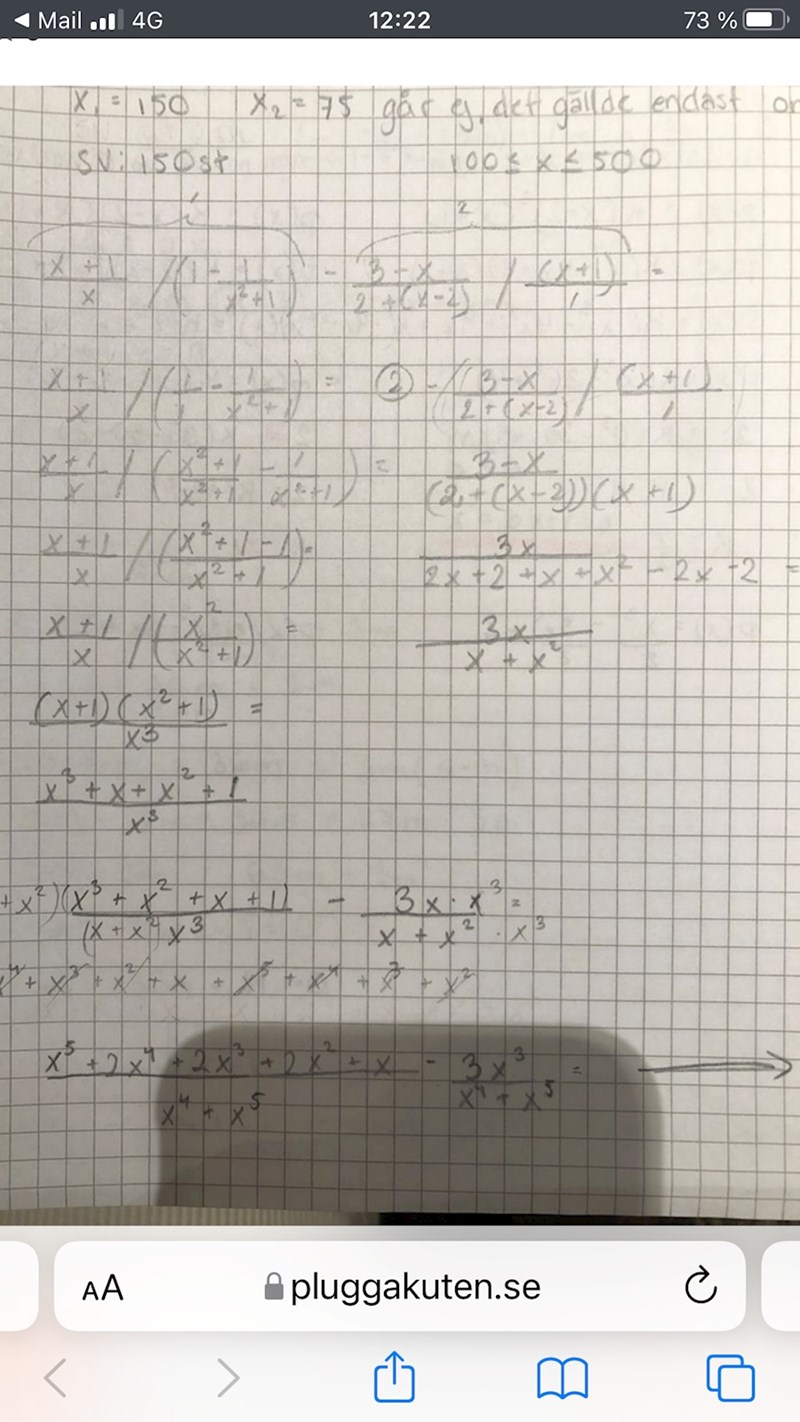 Mail 4G 12:22 73 %
x₁ = 150 x₂ = 75 går ej, det gällde endast om
SV: 150st 100 ≤ x ≤ 500
1 2
x+1/x / (1 - 1/x²+1) - 3-x/2+(x-2) / (x+1)/1 =
x+1/x / (1/1 - 1/x²+1) = ② -((3-x/2+(x-2) / (x+1)/1
x+1/x / (x²+1/x²+1 - 1/x²+1) = 3-x/(2+(x-2))(x+1)
x+1/x / (x²+1-1/x²+1) = 3x/2x+2+x+x²-2x-2 =
x+1/x / (x²/x²+1) = 3x/x+x²
(x+1)(x²+1)/x³ =
x³+x+x²+1/x³
+x²)(x³+x²+x+1)/(x+x²)x³ - 3x·x³/x+x²·x³ =
x⁴+x³+x²+x+x⁵+x⁴+x³+x²
x⁵+2x⁴+2x³+2x²+x/x⁴+x⁵ - 3x³/x⁴+x⁵ = →
AA pluggakuten.se